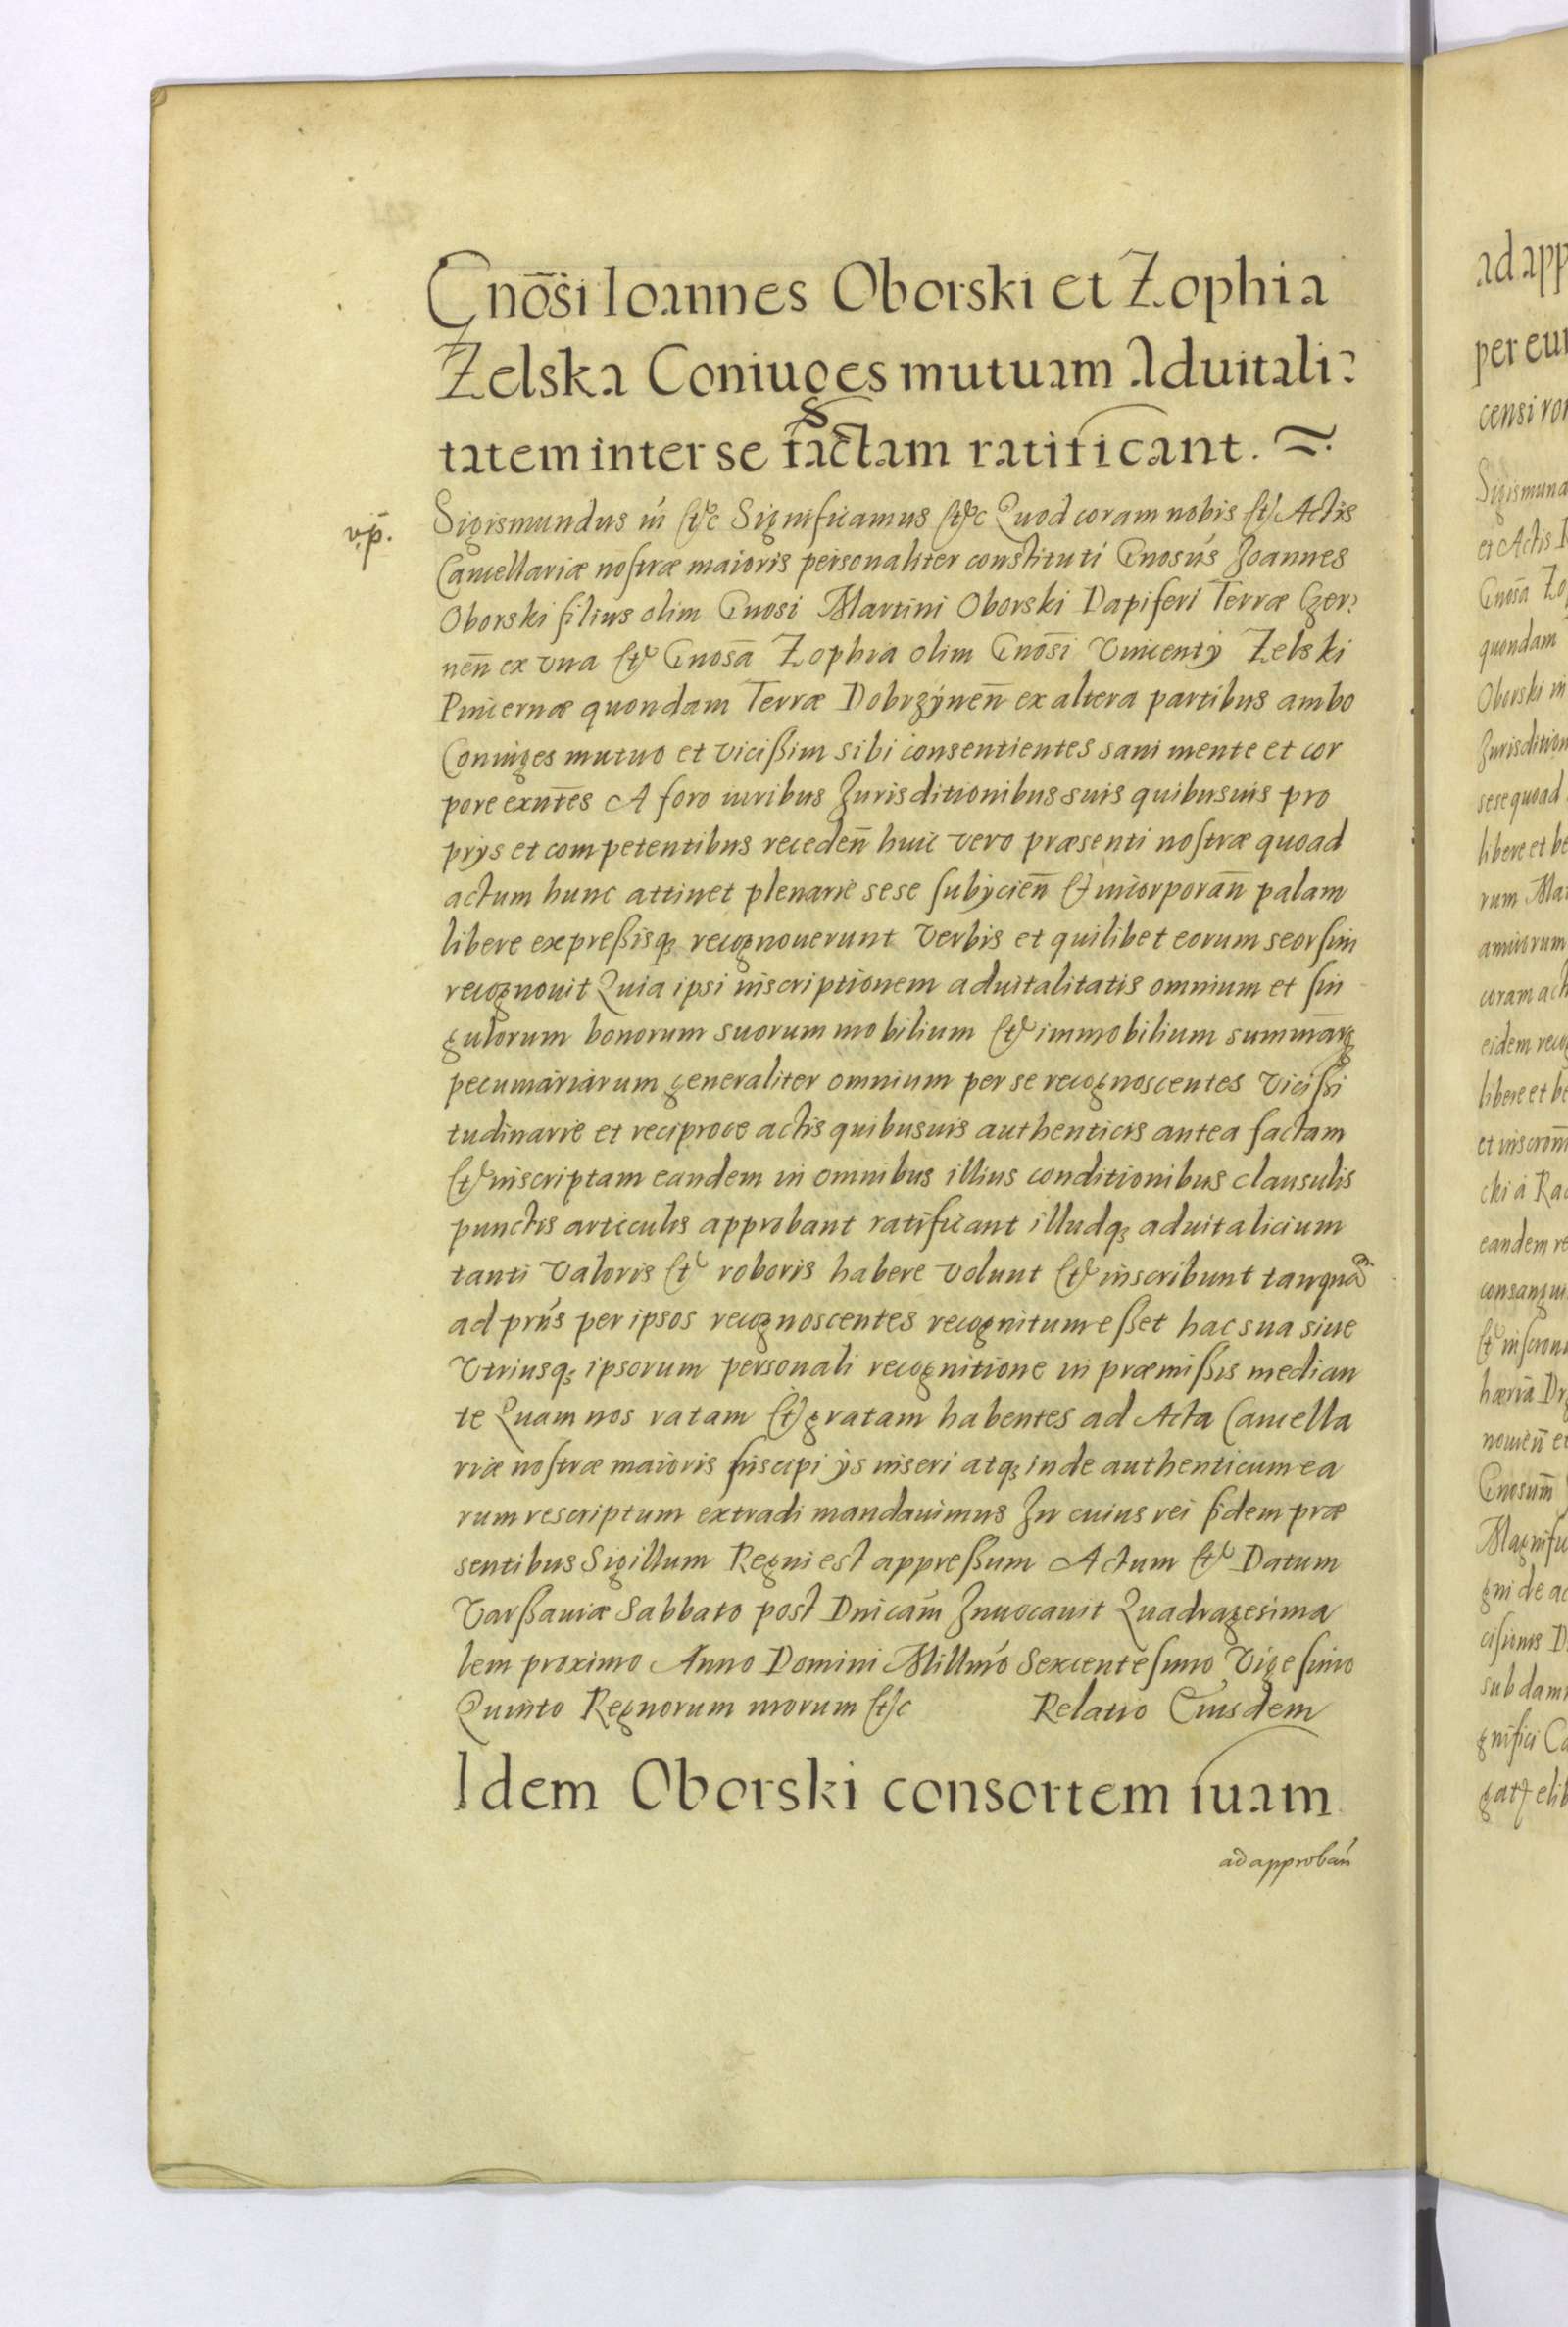 Gnōsi Ioannes Oborski et Zophia
Zelska Coniuges mutuam Aduitali-
tatem inter se factam ratificant.
v.p̄. Sigismundus iii &c Significamus &c Quod coram nobis & Actis
Cancellariæ nostræ maioris personaliter constituti Gnosus Joannes
Oborski filius olim Gnosi Martini Oborski Dapiferi Terræ Czer-
neñ ex vna & Gnosā Zophia olim Gnōsi Vincentÿ Zelski
Pincernæ quondam Terræ Dobrzÿneñ ex altera partibus ambo
Coniuges mutuo et vicißim sibi consentientes sani mente et cor
pore exñtes A foro iuribus Jurisditionibus suis quibusuis pro
prijs et competentibus recedeñ huic vero præsenti nostræ quoad
actum hunc attinet plenarie sese subijcieñ & incorporañ palam
libere expreßisq; recognouerunt Verbis et quilibet eorum seorsim
recognouit Quia ipsi inscriptionem aduitalitatis omnium et sin
gulorum bonorum suorum mobilium & immobilium summarq
pecuniariarum generaliter omnium per se recognoscentes vicißi
tudinarie et reciproce actis quibusuis authenticis antea factam
& inscriptam eandem in omnibus illius conditionibus clausulis
punctis articulis approbant ratificant illudq; aduitalicium
tanti Valoris & roboris habere volunt & inscribunt tanquā
ad prñs per ipsos recognoscentes recognitum eßet hac sua siue
Vtriusq; ipsorum personali recognitione in præmißis median
te Quam nos ratam & gratam habentes ad Acta Cancella
riæ nostræ maioris suscipi ijs inseri atq; inde authenticum ea
rum rescriptum extradi mandauimus In cuius rei fidem præ
sentibus Sigillum Regni est appreßum Actum & Datum
Varßauiæ Sabbato post Dnicam Inuocauit Quadragesima
lem proximo Anno Domini Millmo Sexcentesimo Vigesimo
Quinto Regnorum nrorum &c Relatio Eiusdem
Idem Oborski consortem suam
ad approbañ
ad app
per eu
censi ro
Sigismun
et Actis
Gnosā Zo
quondam
Oborski in
Jurisdition
sese quoad
libere et be
rum Ma
amicorum
coram act
eidem reco
libere et be
et inscrom
cki á Ra
eandem re
consangui
& inscrom
hæriā Dr
nomeñ e
Gnosum̄
Magnifi
gni de a
cisionis D
sub dam
gnifici Ca